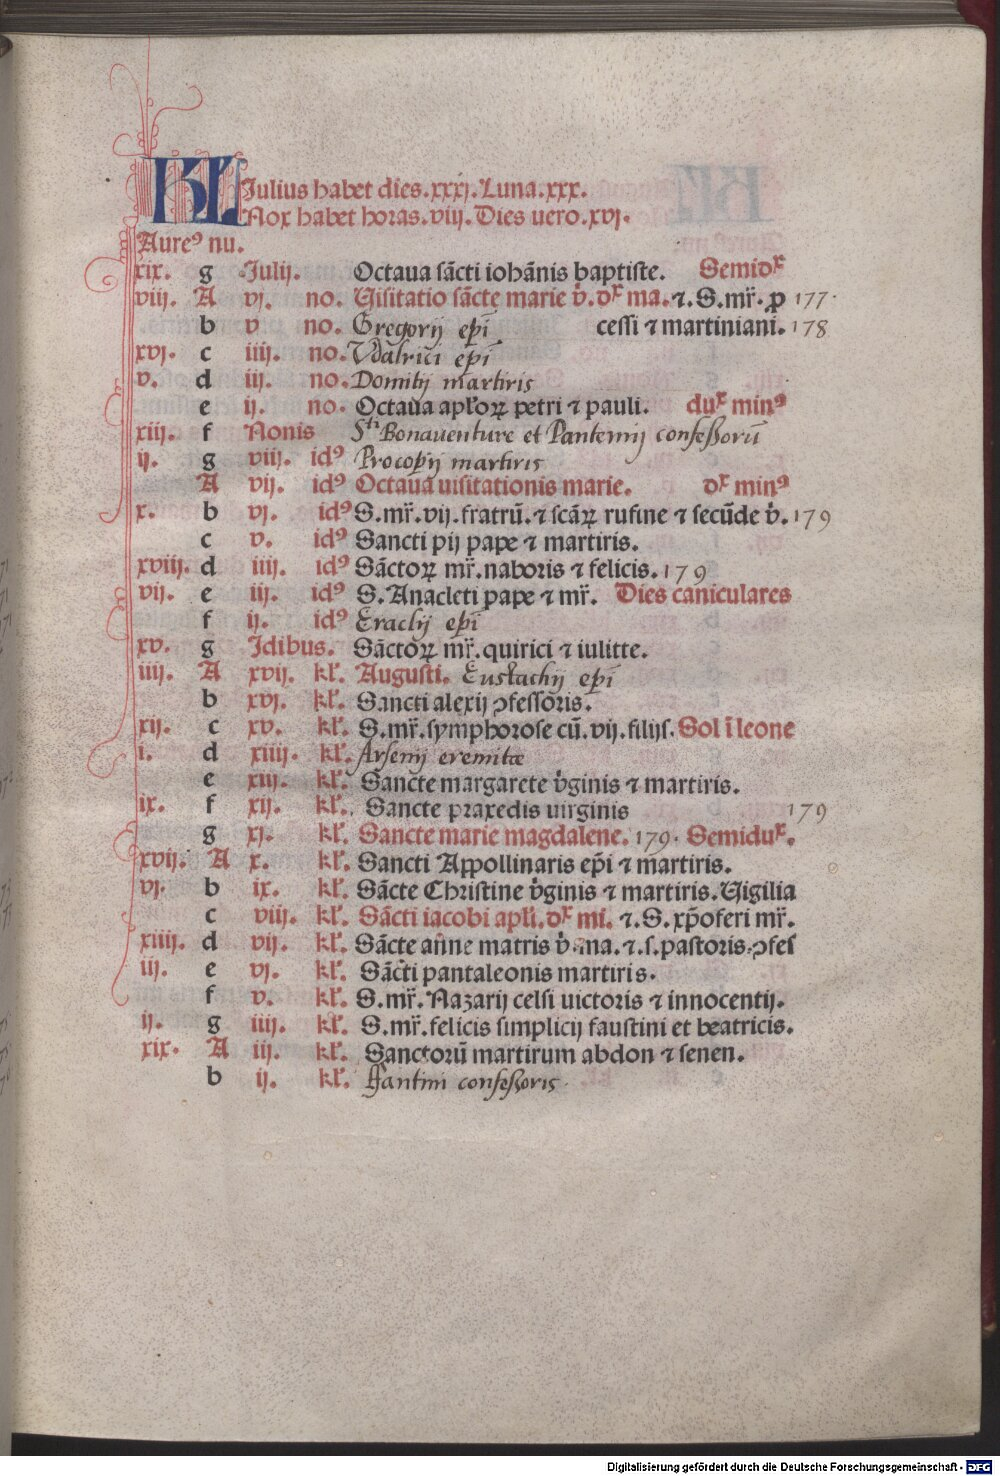 KL Iulius habet dies.xxxj.Luna.xxx.
Nox habet horas.viij.Dies uero.xvj.
Aureꝰ nu.
xix. g Julij. Octaua sācti iohānis baptiste. Semidx̄
viij. A vj. no. Uisitatio sācte marie v̄. dx̄ ma. ⁊.S.mr̄. ꝓ 177.
b v no. Gregorij ep̄i cessi ⁊ martiniani. 178
xvj. c iiij. no. Vdalrici ep̄i
v. d iij. no. Domitij martiris
e ij. no. Octaua apl'oꝝ petri ⁊ pauli. dux̄ minꝰ
xiij. f Nonis Sti Bonauenture et Pantemij confeſſorū
ij. g viij. idꝰ Procopij martiris
A vij. idꝰ Octaua uisitationis marie. dx̄ minꝰ
x. b vj. idꝰ S.mr̄.vij.fratrū.⁊ scāꝝ rufine ⁊ secūde v̄. 179
c v. idꝰ Sancti pij pape ⁊ martiris.
xviij. d iiij. idꝰ Sāctoꝝ mr̄.naboris ⁊ felicis. 179
vij. e iij. idꝰ S.Anacleti pape ⁊ mr̄. Dies caniculares
f ij. idꝰ Eraclij ep̄i
xv. g Jdibus. Sāctoꝝ mr̄.quirici ⁊ iulitte.
iiij. A xvij. kl'. Augusti. Eustachij ep̄i
b xvj. kl'. Sancti alexij ꝯfessoris.
xij. c xv. kl'. S.mr̄.symphorose cū.vij.filijs. Sol ī leone
i. d xiiij. kl'. Arsenij eremitæ
e xiij. kl'. Sancte margarete v̄ginis ⁊ martiris.
ix. f xij. kl'. Sancte praxedis uirginis 179
g xj. kl'. Sancte marie magdalene. 179. Semidux̄.
xvij. A x. kl'. Sancti Appollinaris ep̄i ⁊ martiris.
vj. b ix. kl'. Sācte Christine v̄ginis ⁊ martiris. Uigilia
c viij. kl'. Sācti iacobi apl'i. dx̄ mi. ⁊.S.xp̄oferi mr̄.
xiiij. d vij. kl'. Sācte anne matris v̄. ma. ⁊.s.pastoris.ꝯfes
iij. e vj. kl'. Sācti pantaleonis martiris.
f v. kl'. S.mr̄.Nazarij celsi uictoris ⁊ innocentij.
ij. g iiij. kl'. S.mr̄.felicis simplicij faustini et beatricis.
xix. A iij. kl'. Sanctorū martirum abdon ⁊ senen.
b ij. kl'. Fantini confeſſoris.
Digitalisierung gefördert durch die Deutsche Forschungsgemeinschaft - DFG